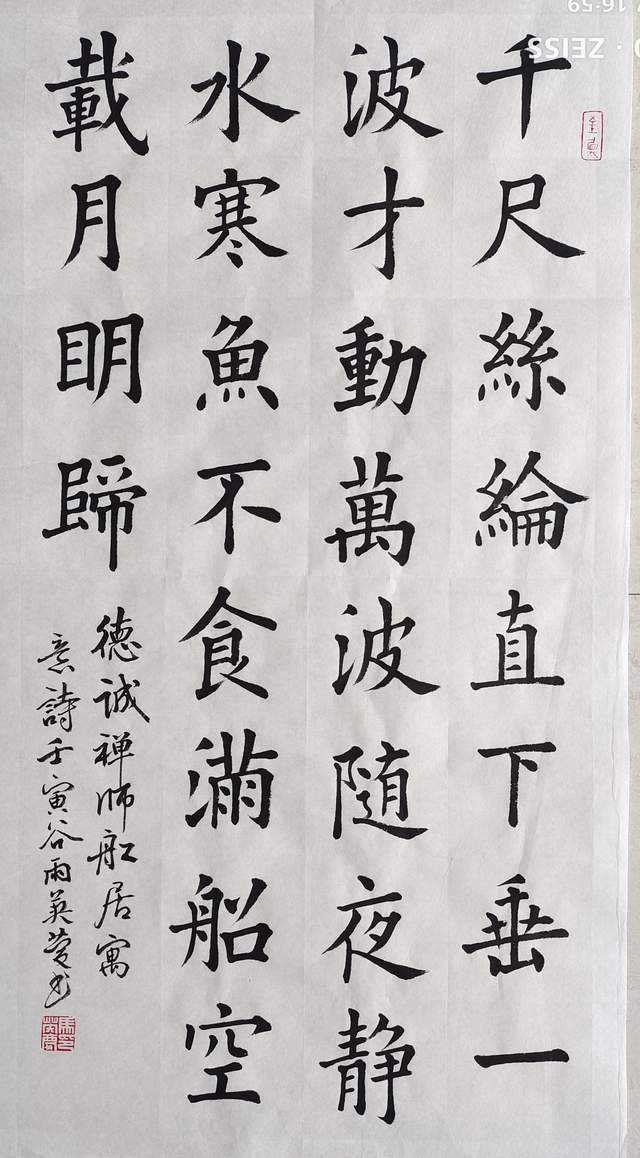 千尺絲綸直下垂一
波才動萬波随夜静
水寒魚不食滿船空
載月眀歸
德誠禅師舡居寓
意詩壬寅谷雨英莹书
ZEISS
16:59